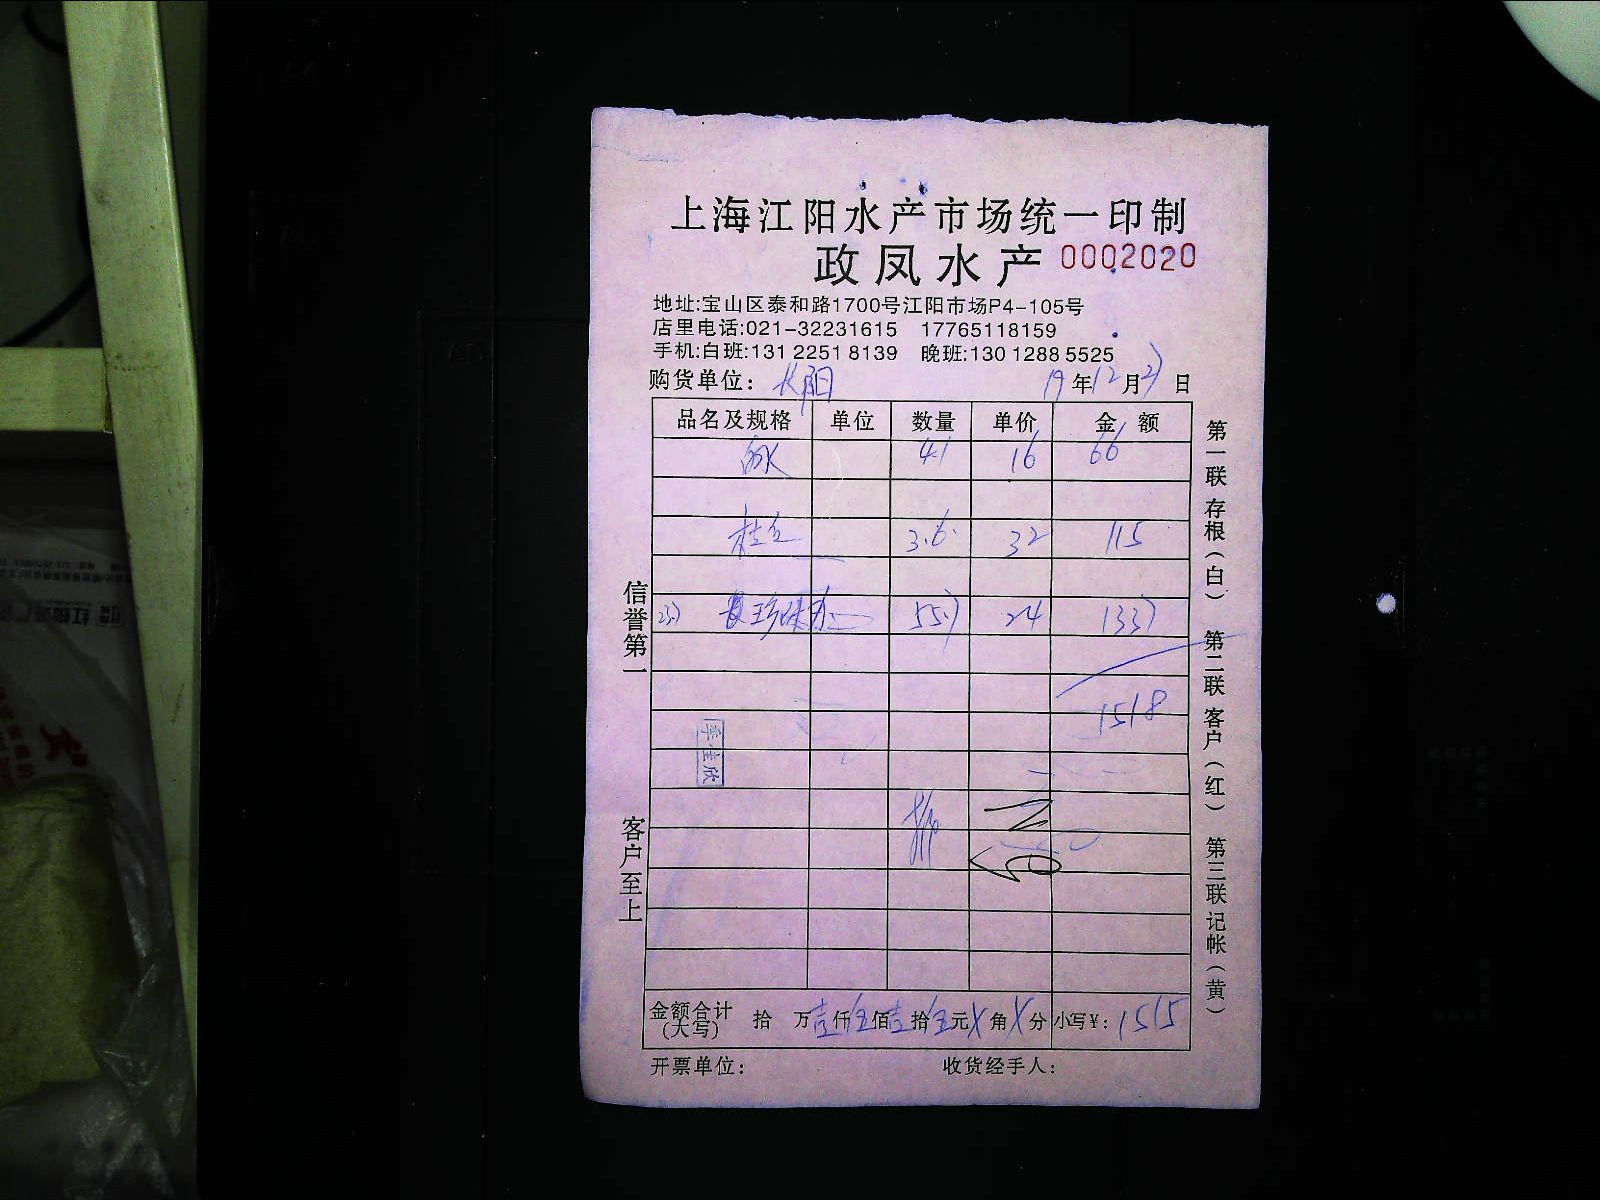 上海江阳水产市场统一印制
政凤水产 0002020
地址:宝山区泰和路1700号江阳市场P4-105号
店里电话:021-32231615 17765118159
手机:白班:131 2251 8139 晚班:130 1288 5525
购货单位: 长阳 19年12月27日
品名及规格 单位 数量 单价 金额
41 16 66
桂鱼 3.6 32 115
珍珠 55.7 24 1337
1518
李佳欣
金额合计(大写) 拾 万壹仟伍佰壹拾伍元X角X分 小写¥: 1515
开票单位: 收货经手人:
信誉第一
客户至上
第一联 存根(白) 第二联 客户(红) 第三联 记帐(黄)